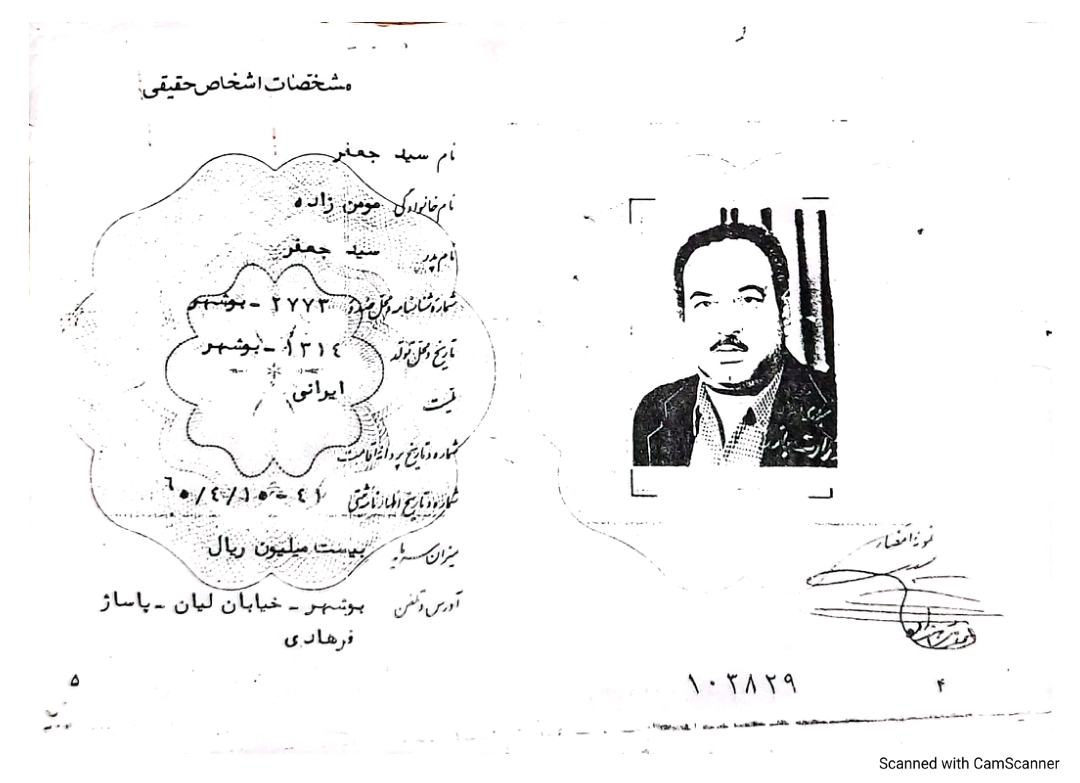 مشخصات اشخاص حقیقی
نام سید جعفر
نام خانوادگی مومن زاده
نام پدر سید جعفر
شماره شناسنامه و محل صدور ۲۷۷۳ - بوشهر
تاریخ و محل تولد ۱۳۱٤ - بوشهر
ملیت ایرانی
شماره و تاریخ پروانه اقامت
شماره و تاریخ اظهارنامه ثبتی ٤۱ - ٦۰/٤/۱٥
میزان سرمایه بیست میلیون ریال
آدرس و تلفن بوشهر - خیابان لیان - پاساژ
فرهادی
۵
نمونه امضاء
۱۰۳۸۲۹
۴
Scanned with CamScanner